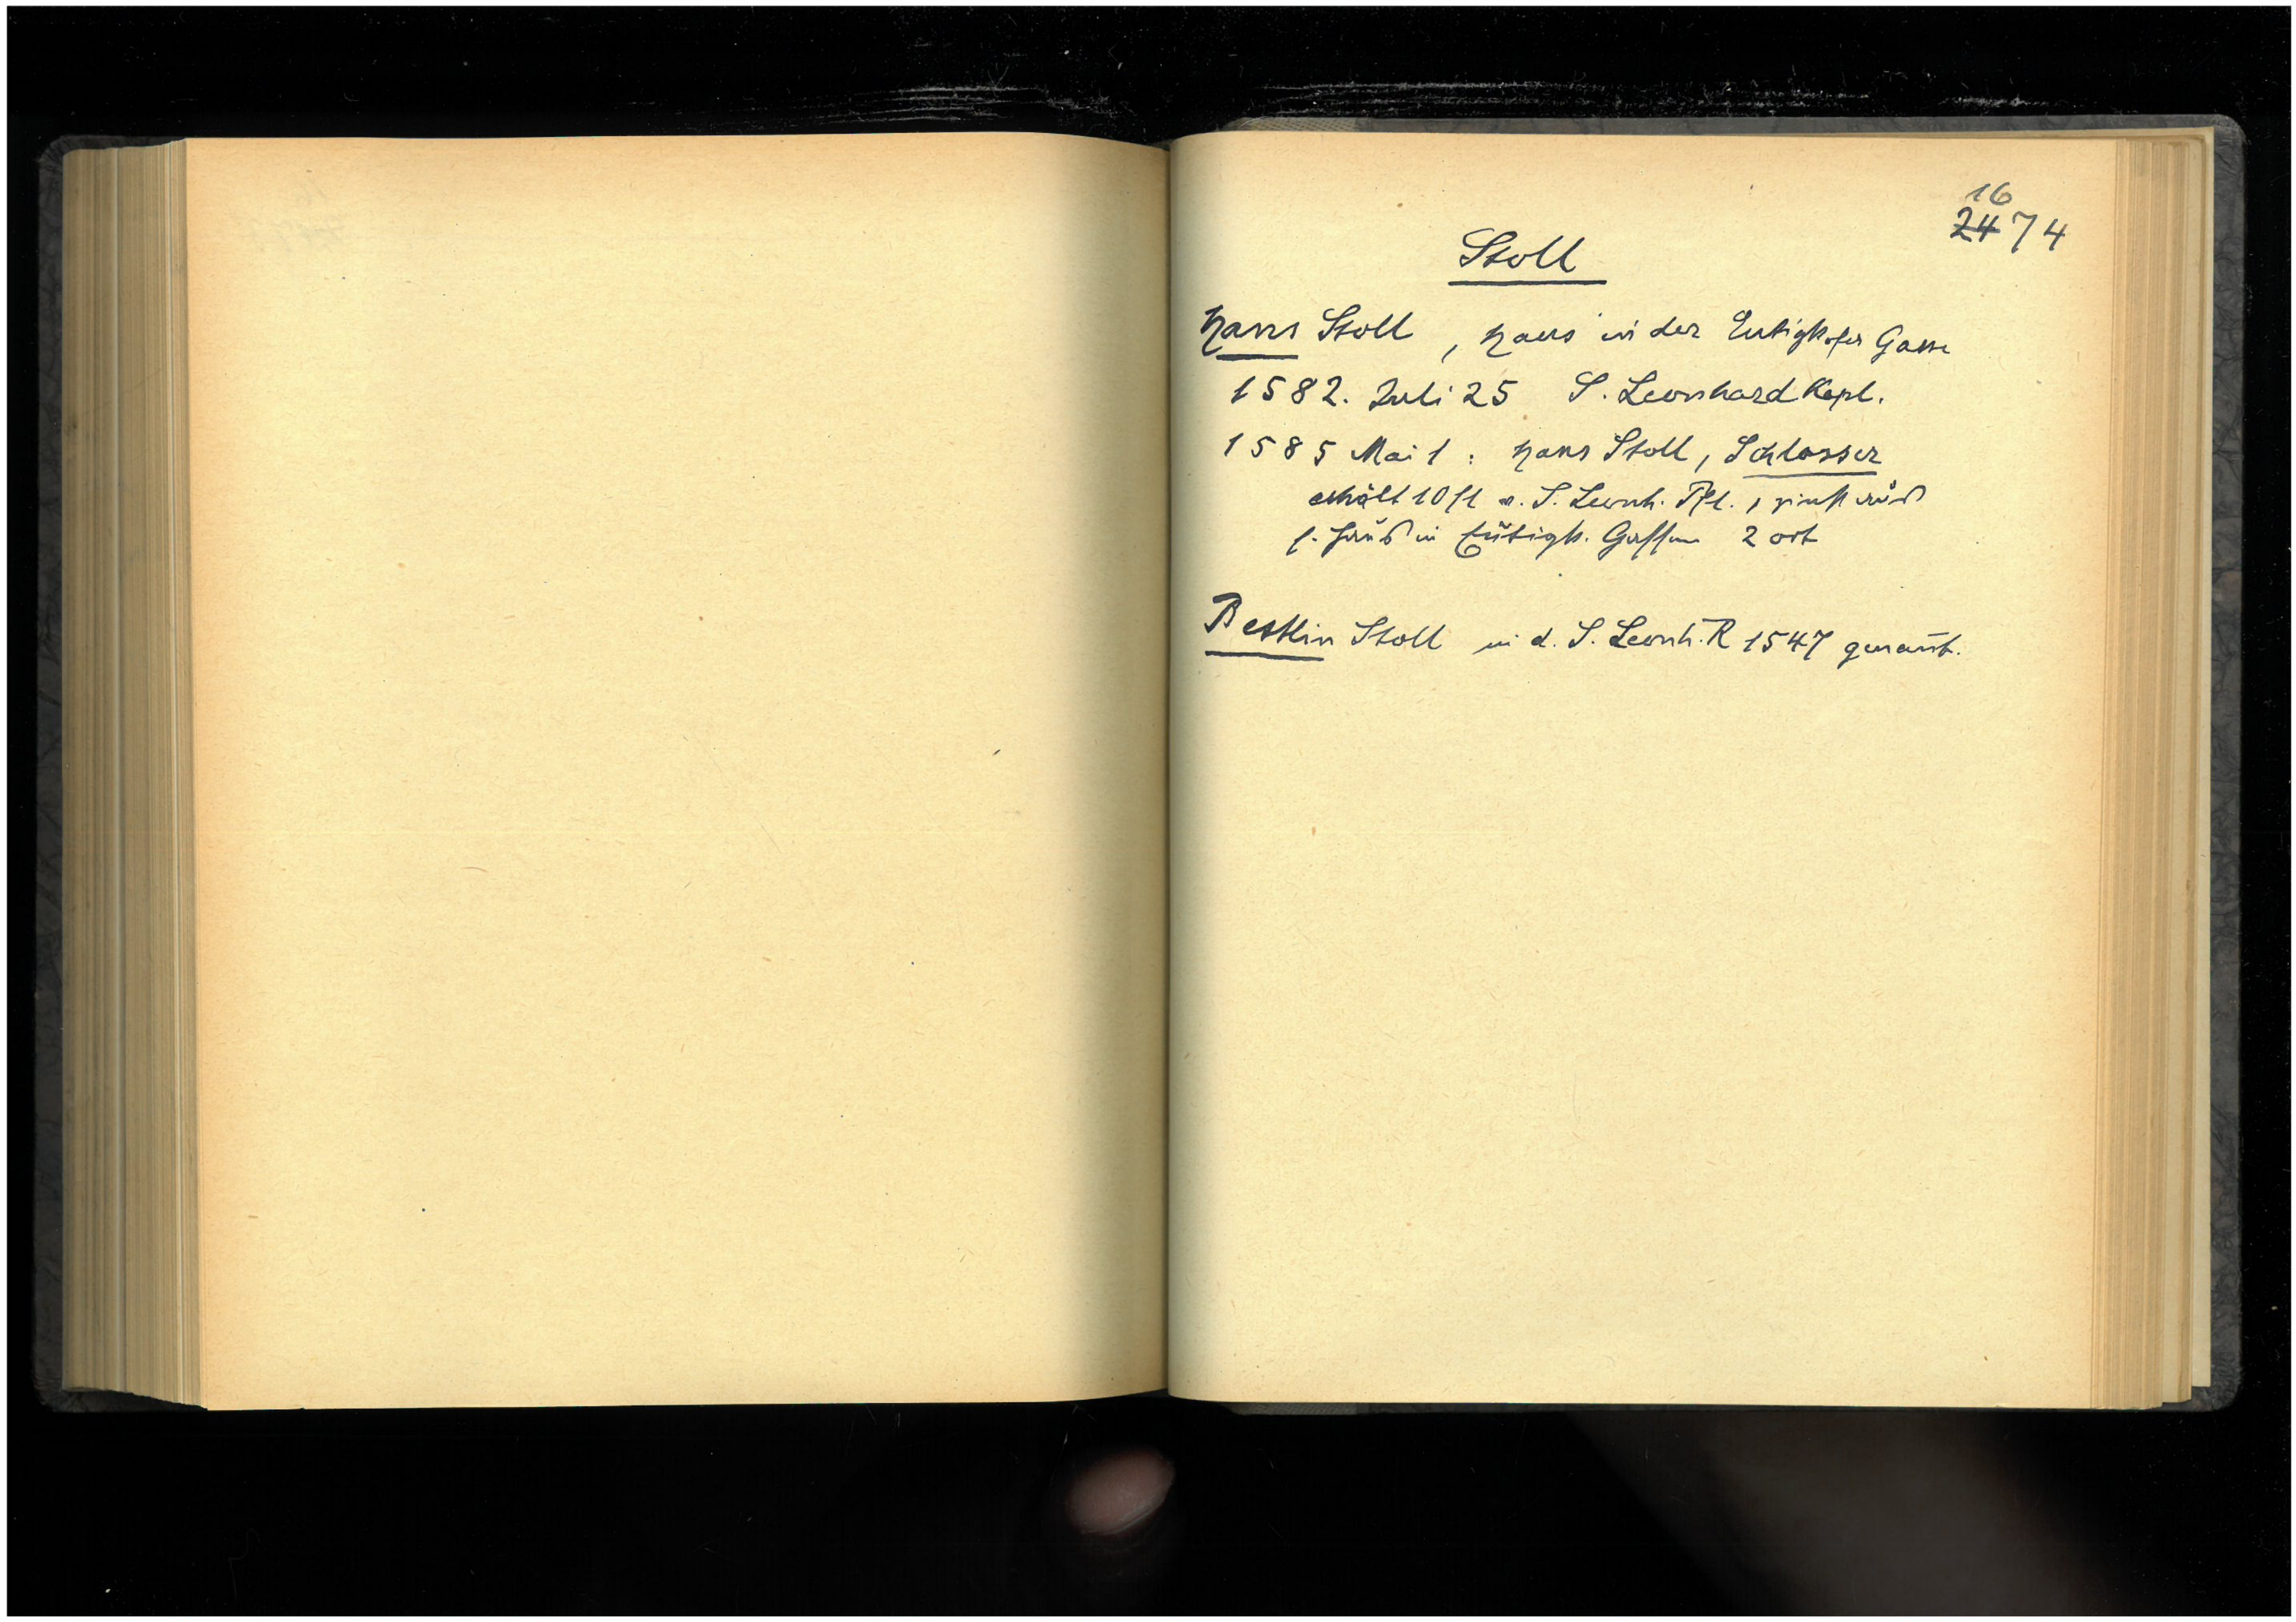 16
24 74
Stoll
Hans Stoll, Haus in der Eutighofer Gasse
1582. Juli 25 S. Leonhard Kapl.
1585 Mai 1: Hans Stoll, Schlosser
erhält 10 fl v. S. Leonh. Pfl., zinst auß
s. Hauß in Eütigh. Gassen 2 ort
Bestlin Stoll in d. S. Leonh. R 1547 genannt.